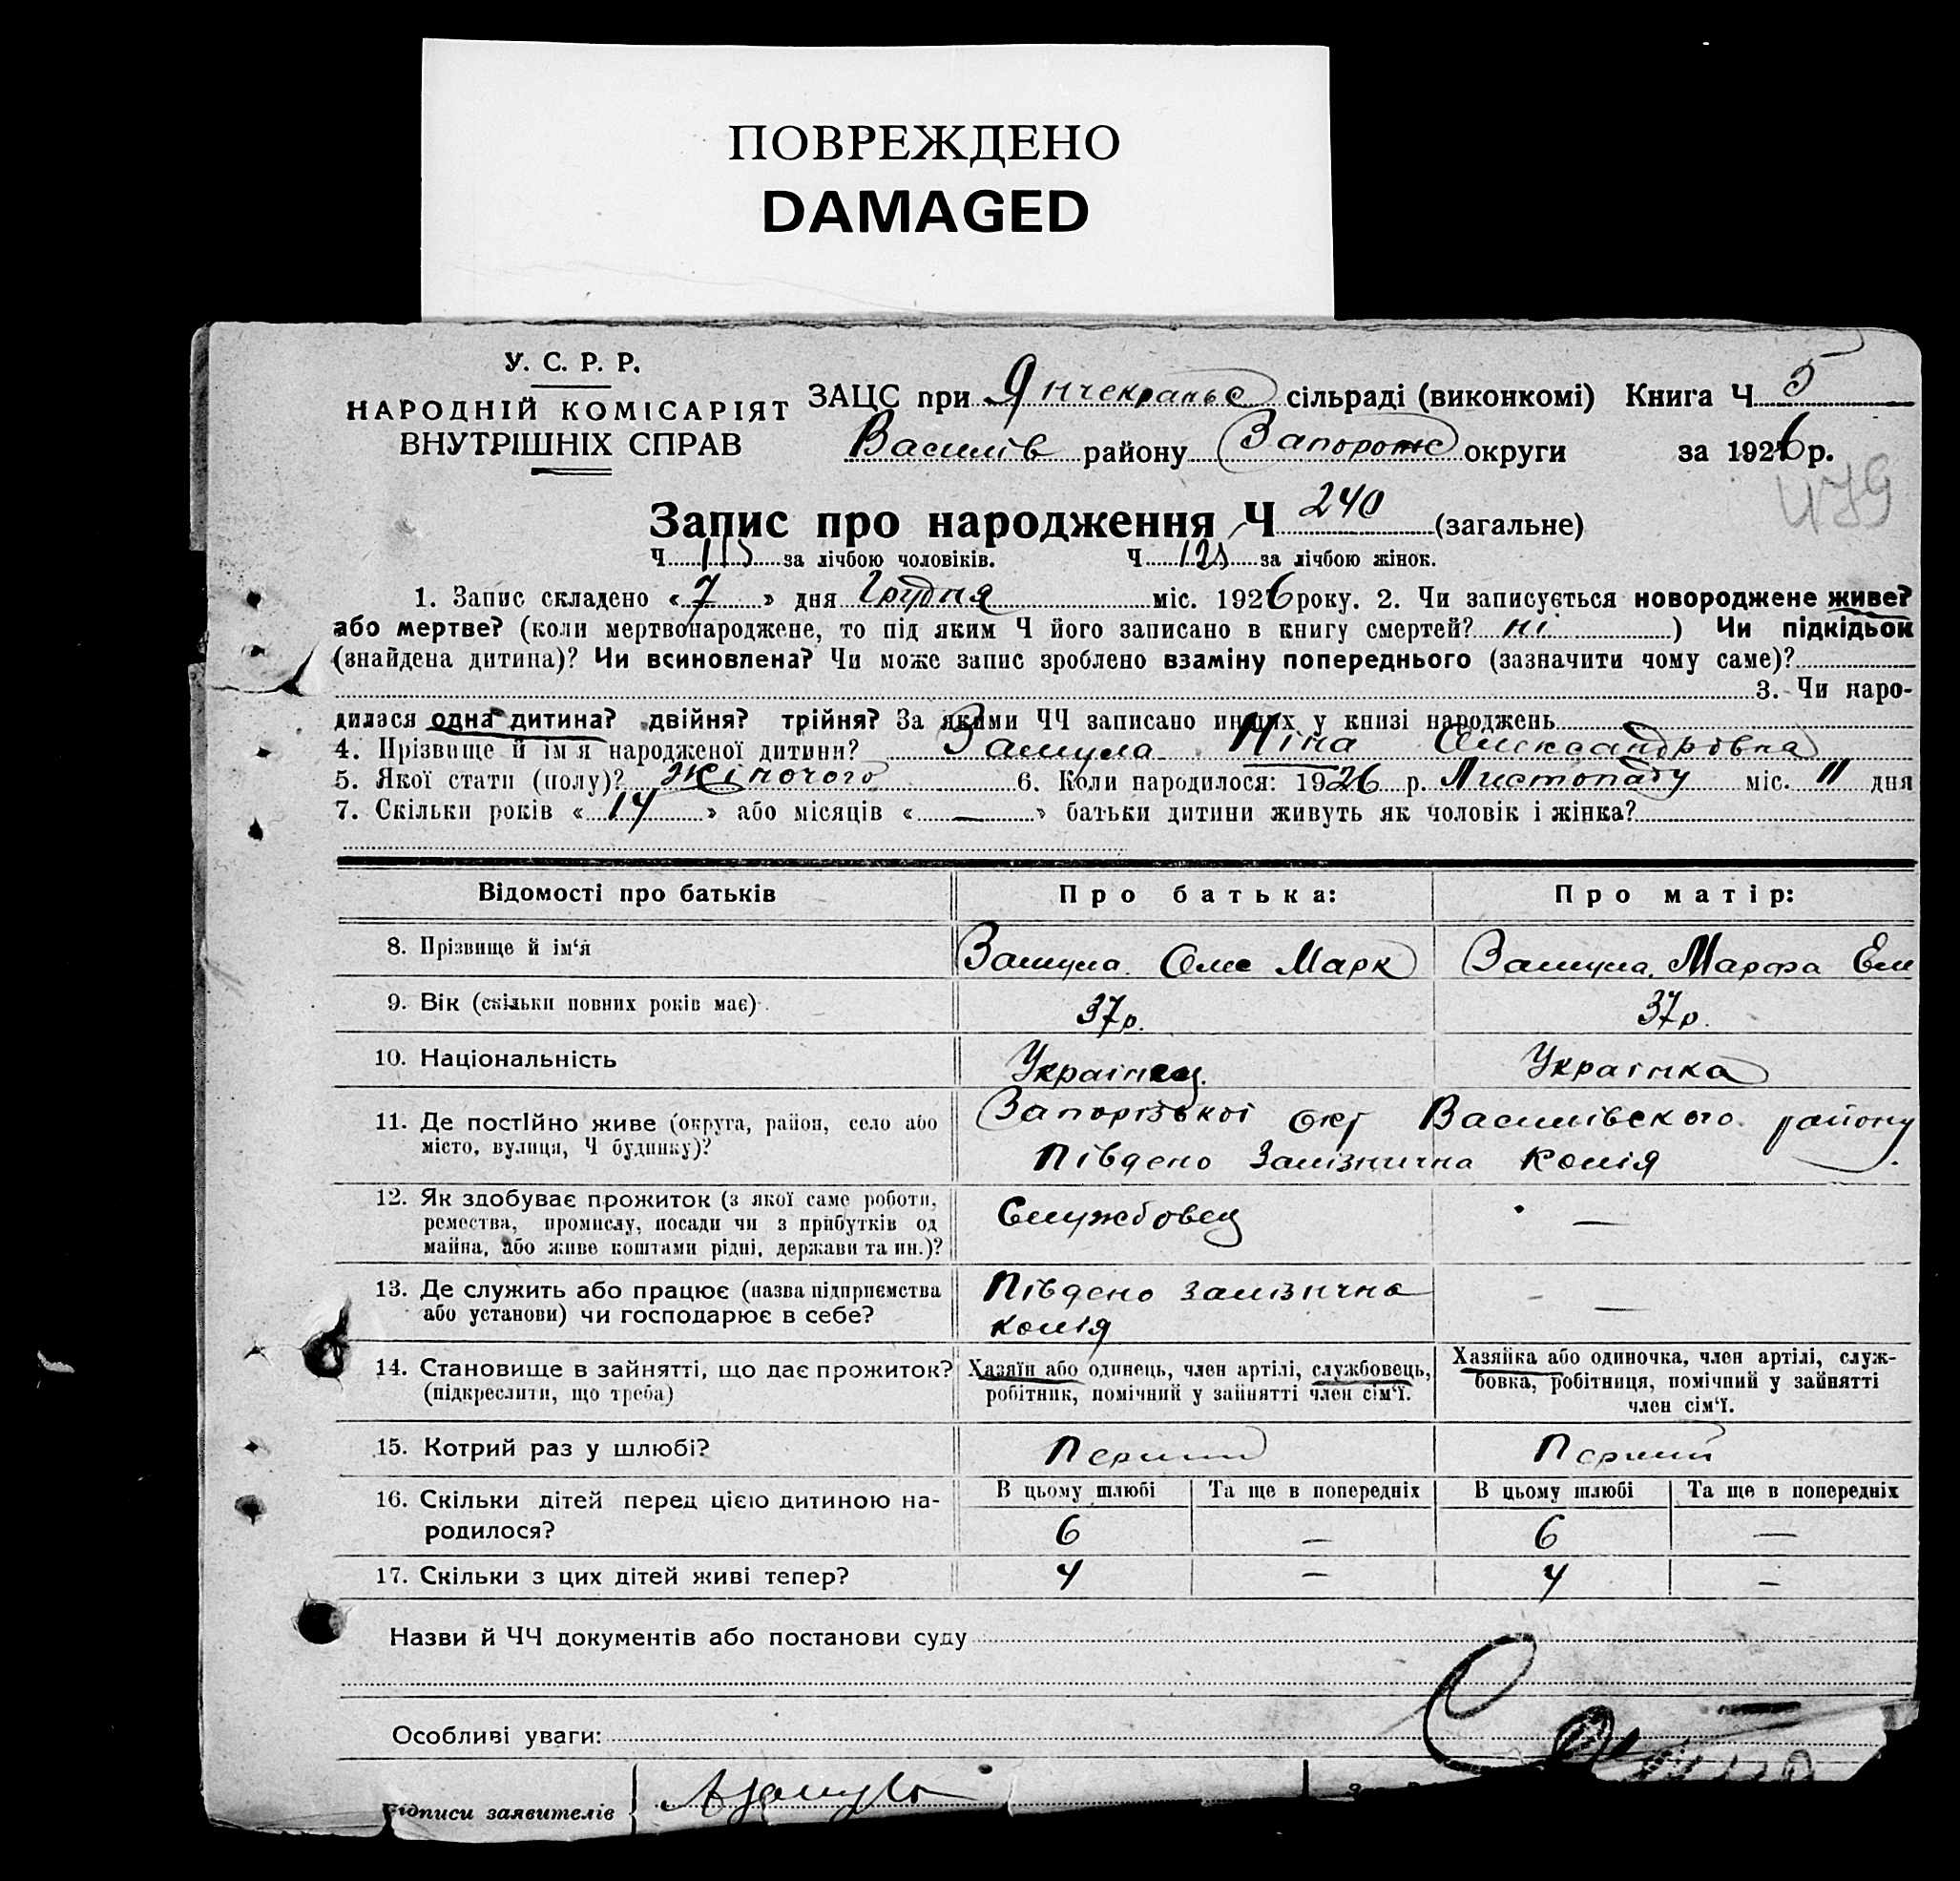 ПОВРЕЖДЕНО
DAMAGED
У. С. Р. Р.
НАРОДНІЙ КОМІСАРІЯТ
ВНУТРІШНІХ СПРАВ
ЗАЦС при Янчекракьс сільраді (виконкомі) Книга Ч 5
Василів району Запорож округи за 1926 р.
479
Запис про народження Ч 240 (загальне)
Ч 115 за лічбою чоловіків. Ч 125 за лічбою жінок.
1. Запис складено «7» дня Грудня міс. 1926 року. 2. Чи записується новороджене живе?
або мертве? (коли мертвонароджене, то під яким Ч його записано в книгу смертей? ні ) Чи підкідьок
(знайдена дитина)? Чи всиновлена? Чи може запис зроблено взаміну попереднього (зазначити чому саме)?
3. Чи наро-
дилася одна дитина? двійня? трійня? За якими ЧЧ записано инших у книзі народжень
4. Прізвище й ім'я народженої дитини? Замула Ніна Олександровна
5. Якої стати (полу)? жіночого 6. Коли народилося: 1926 р. Листопаду міс. 11 дня
7. Скільки років «14» або місяців «—» батьки дитини живуть як чоловік і жінка?
Відомості про батьків Про батька: Про матір:
8. Прізвище й ім'я Замула Олес Марк Замула Марфа Ем
9. Вік (скільки повних років має) 37р. 37р.
10. Національність Українец. Українка
11. Де постійно живе (округа, район, село або Запорізькоі окр Василівского району
місто, вулиця, Ч будинку)? Південо Залізнична колія
12. Як здобуває прожиток (з якої саме роботи, Службовец —
ремества, промислу, посади чи з прибутків од
майна, або живе коштами рідні, держави та ин.)?
13. Де служить або працює (назва підприємства Південо залізична —
або установи) чи господарює в себе? колія
14. Становище в зайнятті, що дає прожиток? Хазяїн або одинець, член артілі, службовець, Хазяйка або одиночка, член артілі, служ-
(підкреслити, що треба) робітник, помічний у зайнятті член сім'ї. бовка, робітниця, помічний у зайнятті
член сім'ї.
15. Котрий раз у шлюбі? Перший Перший
16. Скільки дітей перед цією дитиною на- В цьому шлюбі Та ще в попередніх В цьому шлюбі Та ще в попередніх
родилося? 6 — 6 —
17. Скільки з цих дітей живі тепер? 4 — 4 —
Назви й ЧЧ документів або постанови суду
Особливі уваги:
ідписи заявителів